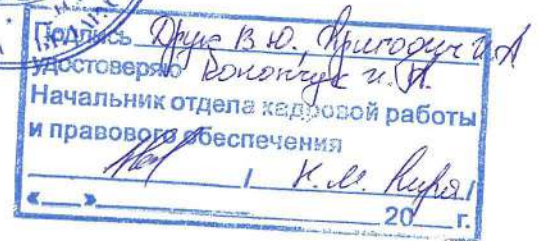 Подпись Друк В Ю., Кригодич И А
удостоверяю Конончук И. А.
Начальник отдела кадровой работы
и правового обеспечения
/ Н. М. /
«__» 20__ г.